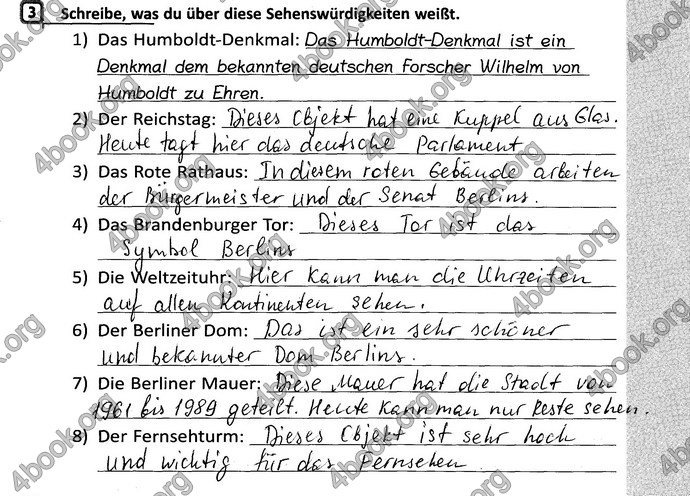 3 Schreibe, was du über diese Sehenswürdigkeiten weißt.
1) Das Humboldt-Denkmal: Das Humboldt-Denkmal ist ein
Denkmal dem bekannten deutschen Forscher Wilhelm von
Humboldt zu Ehren.
2) Der Reichstag: Dieses Objekt hat eine Kuppel aus Glas.
Heute tagt hier das deutsche Parlament
3) Das Rote Rathaus: In diesem roten Gebäude arbeiten
der Bürgermeister und der Senat Berlins.
4) Das Brandenburger Tor: Dieses Tor ist das
Symbol Berlins
5) Die Weltzeituhr: Hier kann man die Uhrzeiten
auf allen Kontinenten sehen.
6) Der Berliner Dom: Das ist ein sehr schöner
und bekannter Dom Berlins.
7) Die Berliner Mauer: Diese Mauer hat die Stadt von
1961 bis 1989 geteilt. Heute kann man nur Reste sehen.
8) Der Fernsehturm: Dieses Objekt ist sehr hoch
und wichtig für das Fernsehen
4book.org